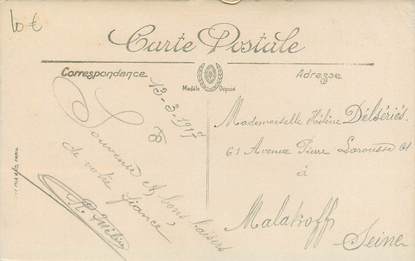 10 €
Carte Postale
Correspondance
Modèle Déposé
Adresse
12-3-1917
Souvenir et bons baisers
de votre fiancé
Mademoiselle Hélène Délseriès
61 Avenue Pierre Larousse 61
à
Malakoff
Seine